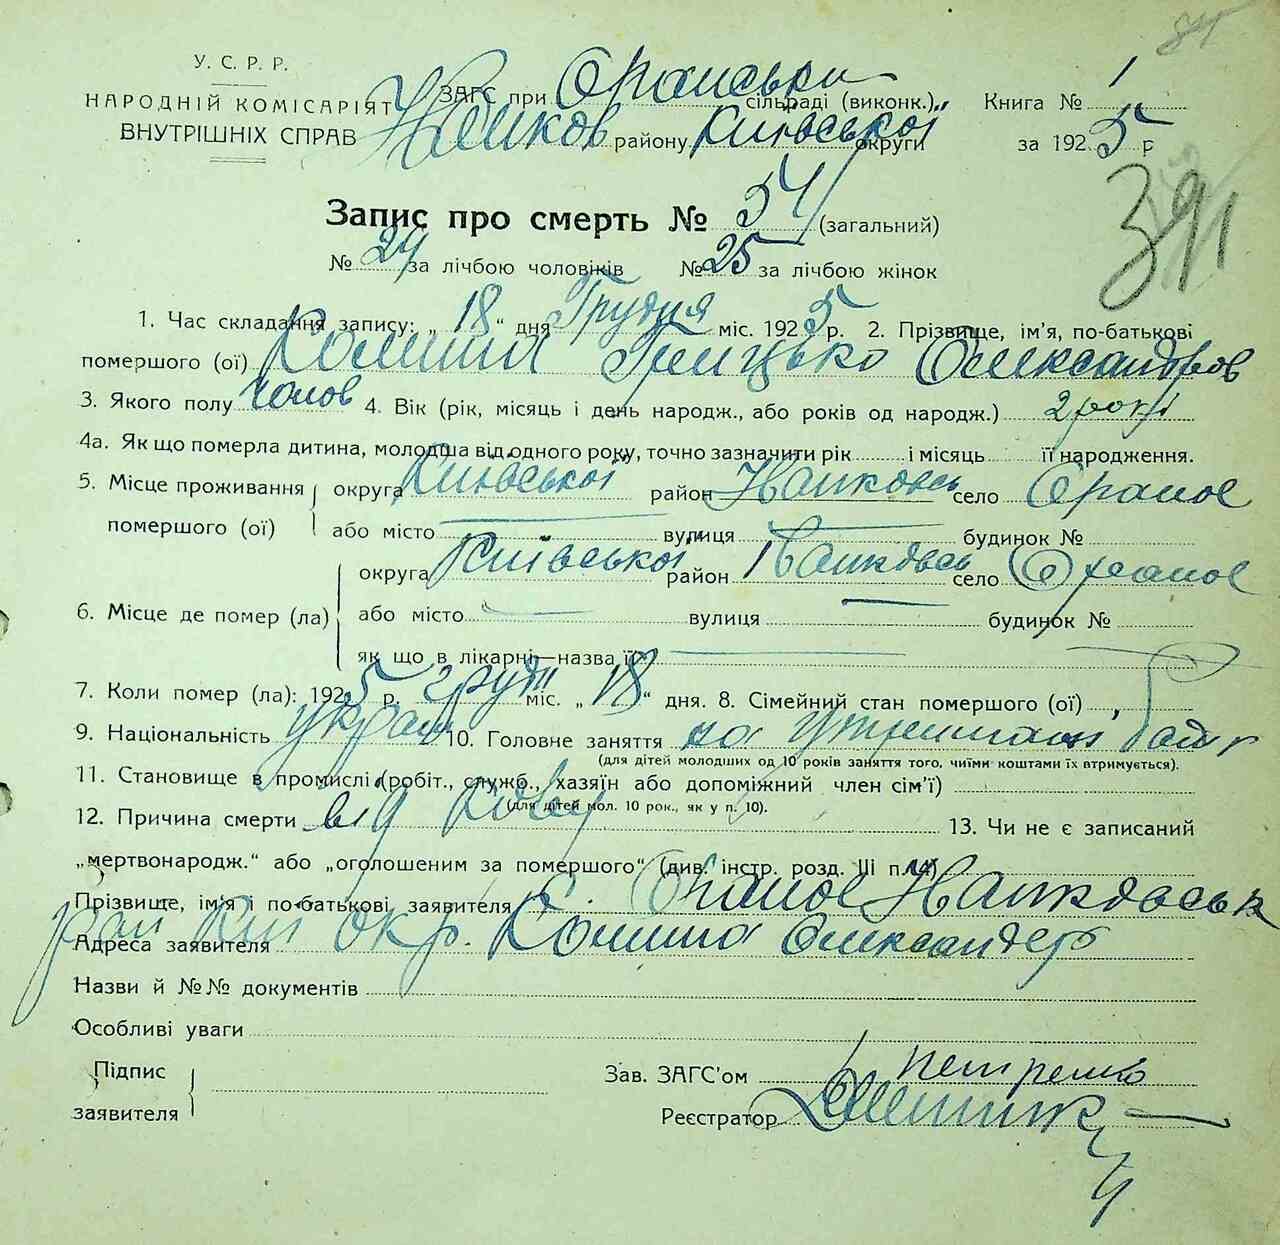 У. С. Р. Р.
НАРОДНІЙ КОМІСАРІЯТ
ВНУТРІШНІХ СПРАВ
ЗАГС при Оранськи сільраді (виконк.),
району Київської округи
Книга № 1
за 1925 р
391
Запис про смерть № 54 (загальний)
№ 29 за лічбою чоловіків № 25 за лічбою жінок
1. Час складання запису: „ 18 “ дня Грудня міс. 1925 р. 2. Прізвище, ім'я, по-батькові
помершого (ої) Грицько Олександров
3. Якого полу чолов 4. Вік (рік, місяць і день народж., або років од народж.) 2 рокі
4а. Як що померла дитина, молодша від одного року, точно зазначити рік і місяць її народження.
5. Місце проживання помершого (ої) округа Київської район село Ораное
або місто вулиця будинок №
6. Місце де помер (ла) округа Київської район село Ораное
або місто вулиця будинок №
як що в лікарні—назва її
7. Коли помер (ла): 1925 р. груд міс. „ 18 “ дня. 8. Сімейний стан помершого (ої)
9. Національність україн 10. Головне заняття на утриманн бать
(для дітей молодших од 10 років заняття того, чиїми коштами їх втримується).
11. Становище в промислі (робіт., служб., хазяїн або допоміжний член сім'ї)
(для дітей мол. 10 рок., як у п. 10).
12. Причина смерти від кову 13. Чи не є записаний
„мертвонародж.“ або „оголошеним за помершого“ (див. інстр. розд. III п.
Прізвище, ім'я і по-батькові заявителя Ораное
рай Киї окр.
Адреса заявителя Олександер
Назви й №№ документів
Особливі уваги
Підпис заявителя
Зав. ЗАГС'ом Петренко
Реєстратор